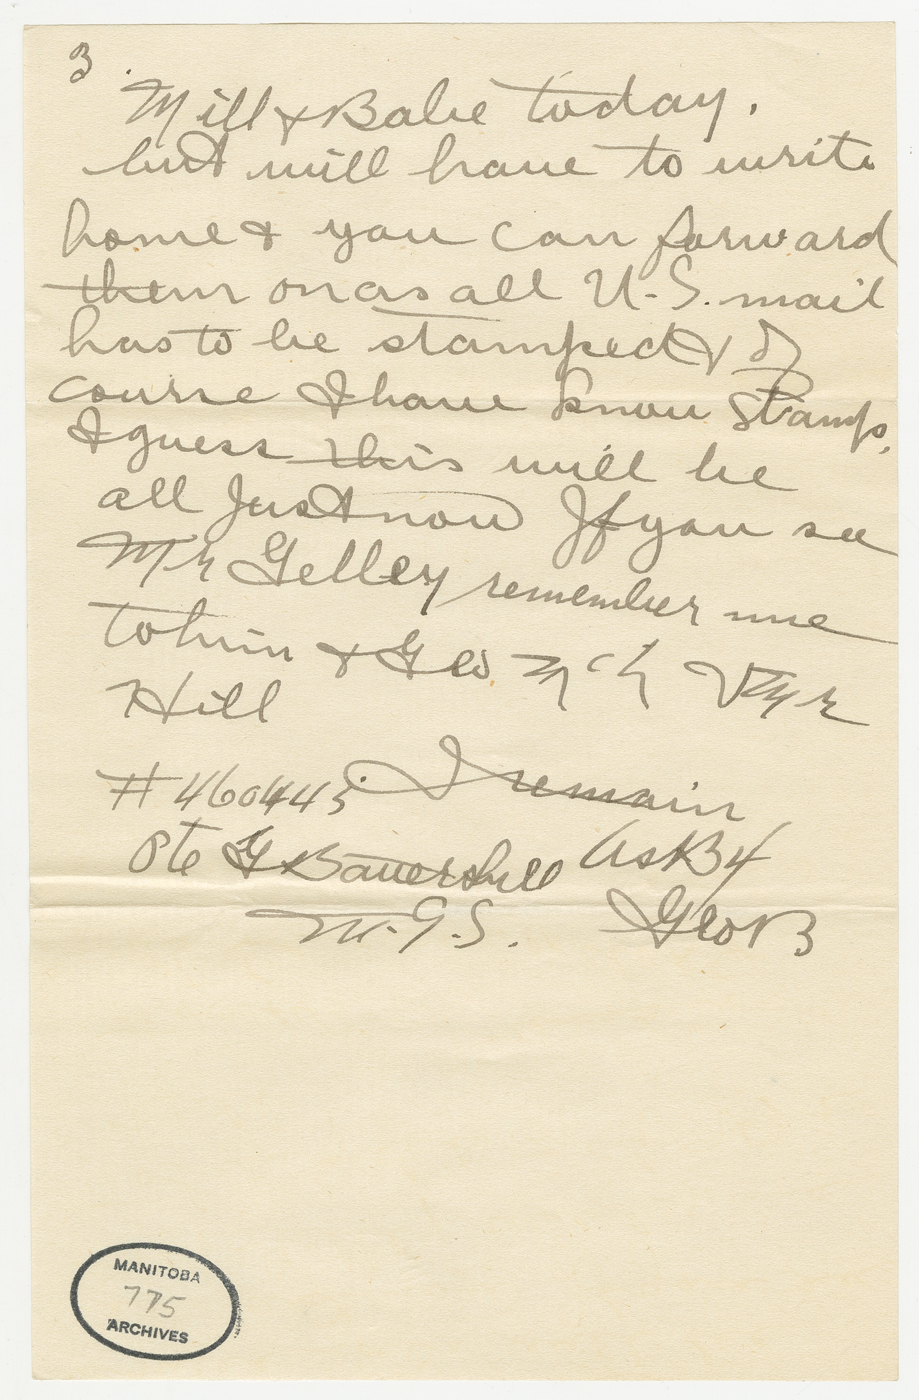 3.
Mill & Babe today.
but will have to write
home & you can forward
them on as all U.S. mail
has to be stamped & of
course I have know stamps.
I guess this will be
all Just now If you see
Mr Gelley remember me
to him & Geo
Hill
#460445. I remain
Pte G Battershill As B4
M.G.S. Geo B
MANITOBA
775
ARCHIVES